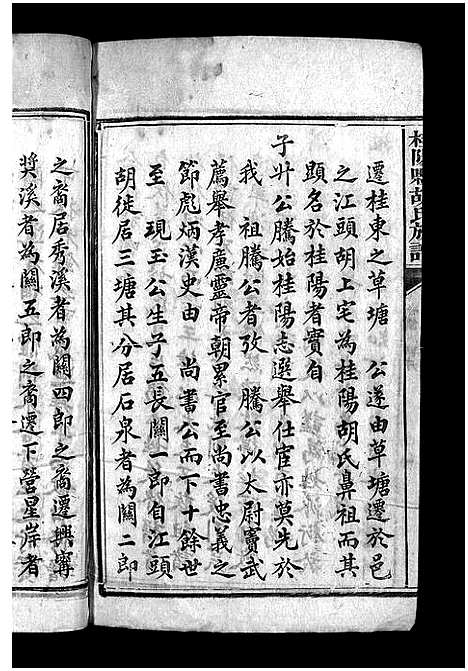 桂陽縣胡氏族譜
遷桂東之草塘　公遂由草塘遷於邑
之江頭胡上宅為桂陽胡氏鼻祖而其
顯名於桂陽者實自
子升公騰始桂陽志選舉仕宦亦莫先於
我　祖騰公者攷　騰公以太尉竇武
薦舉孝廉靈帝朝累官至尚書忠義之
節彪炳漢史由　尚書公而下十餘世
至　現玉公生子五長關一郎自江頭
胡徙居三塘其分居石泉者為關二郎
之裔居秀溪者為關四郎之裔遷興寧
奬溪者為關五郎之裔遷下營星岸者